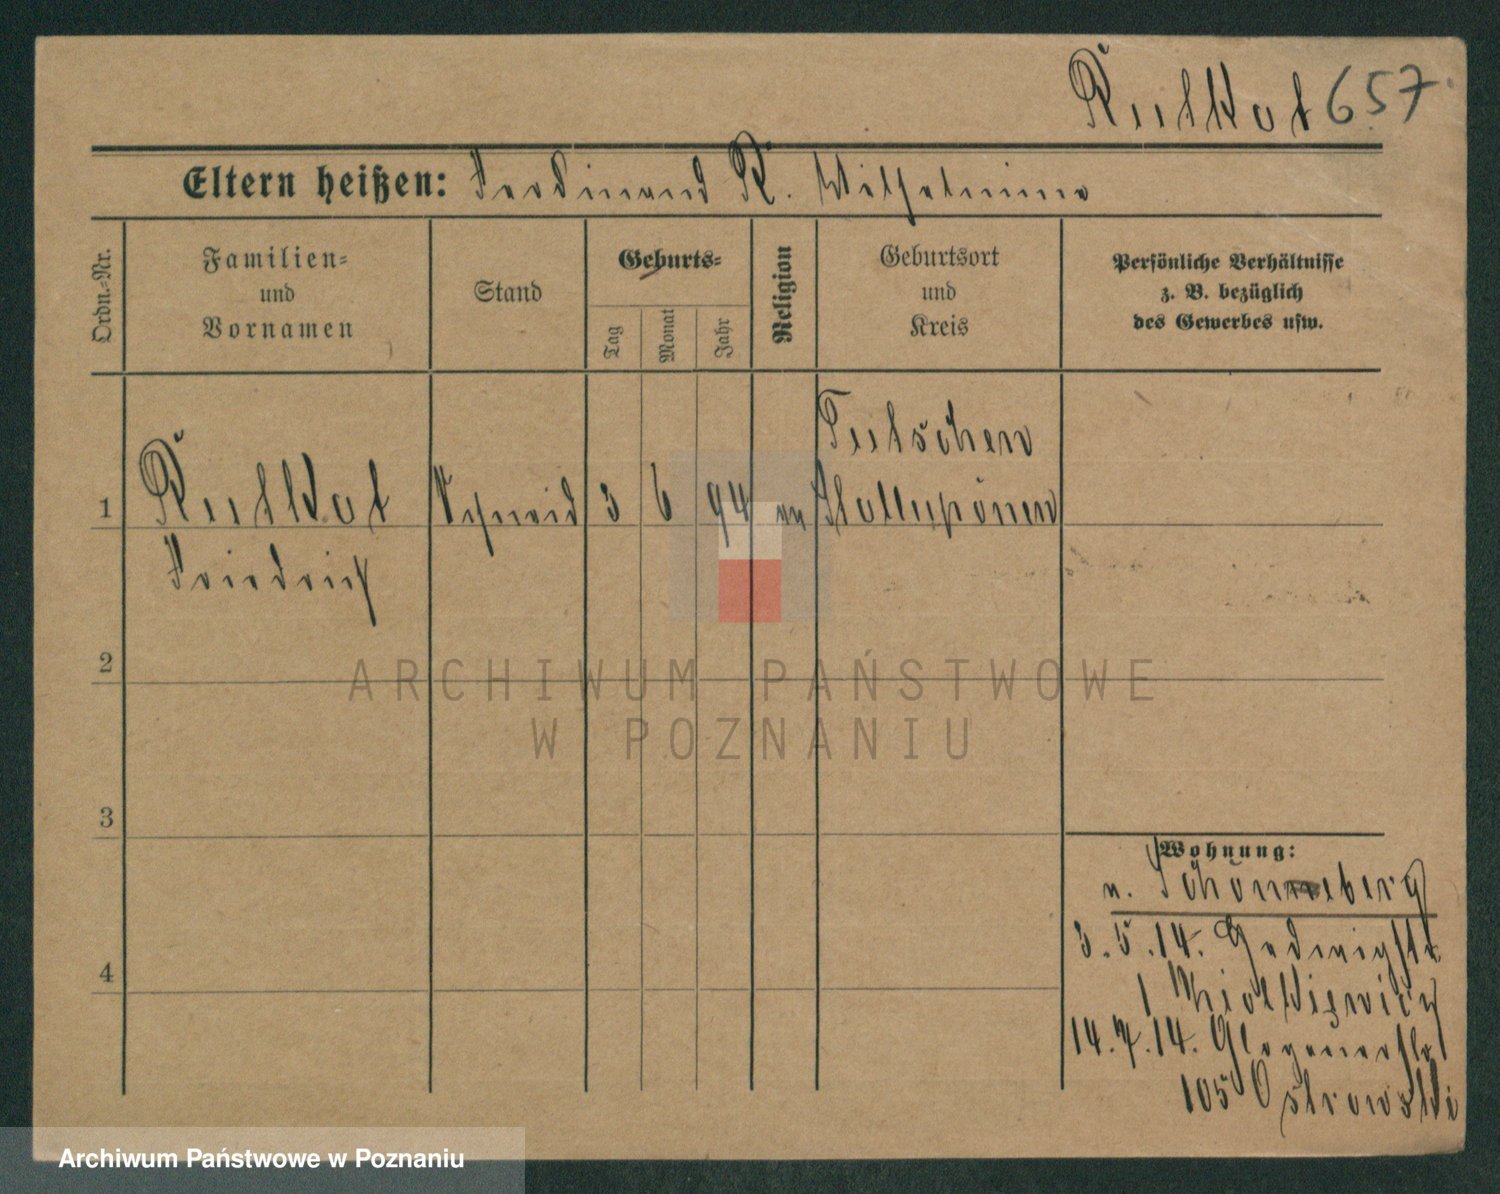 Rutkat 657
Eltern heißen: Ferdinand R. Wilhelmine
Ordn.-Nr.
Familien-
und
Vornamen
Stand
Geburts-
Tag
Monat
Jahr
Religion
Geburtsort
und
Kreis
Persönliche Verhältnisse
z. B. bezüglich
des Gewerbes usw.
Tutschen
1 Schneid 3 6 94 Stallupönen
Friedrich
2
3
4
Wohnung:
n. Schöneberg
3.5.14.
1
14.7.14. Glogauerstr
105 Ostrowski
ARCHIWUM PAŃSTWOWE
W POZNANIU
Archiwum Państwowe w Poznaniu